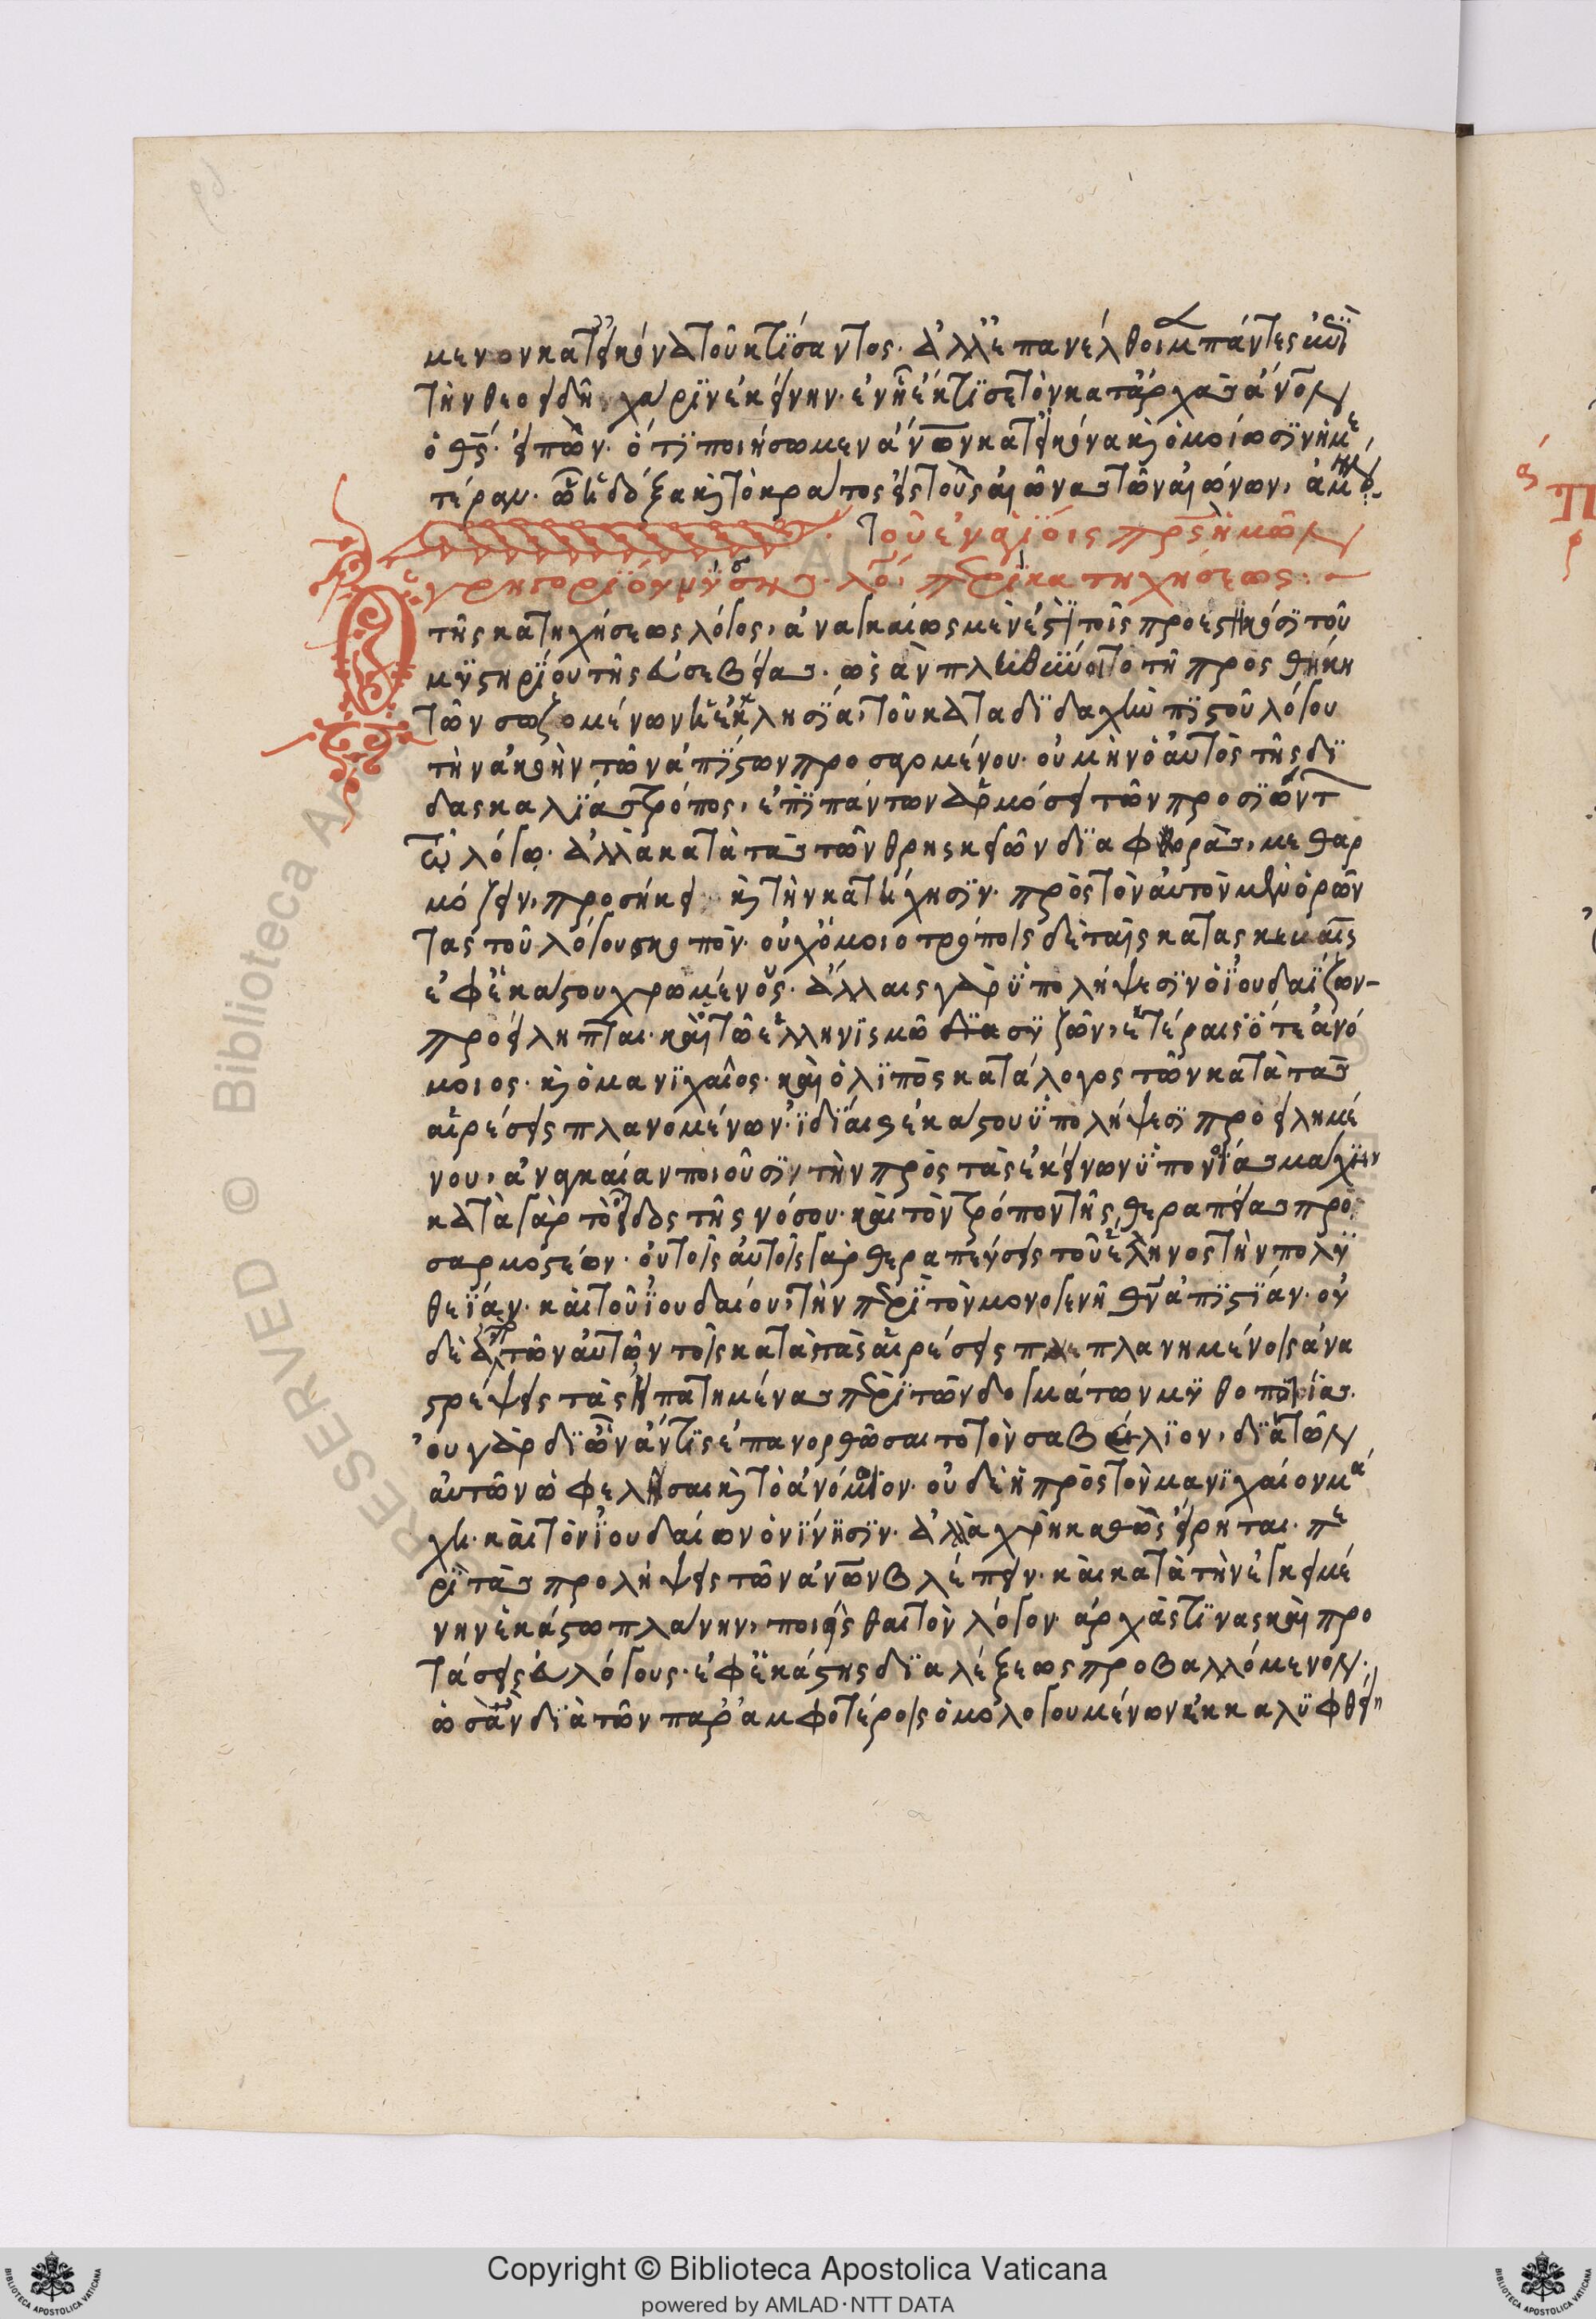 μενον κατ' εἰκόνα τοῦ κτίσαντος· ἀλλ' ἐπανέλθοιμεν πάντες ἐπὶ
τὴν θεοειδῆ χάριν ἐκείνην· ἐν ᾗ ἔκτισε τὸν κατ' ἀρχὰς ἄνον
ὁ θς· εἰπὼν· ὅτι ποιήσωμεν ἄνων κατ' εἰκόνα καὶ ὁμοίωσιν ἡμε
τέραν· ᾧ ἡ δόξα καὶ τὸ κράτος εἰς τοὺς αἰῶνας τῶν αἰώνων, ἀμήν
τοῦ ἐν ἁγίοις πρς ἡμῶν
γρηγορίου νύσης λό περὶ κατηχήσεως
Ο τῆς κατηχήσεως λόγος, ἀναγκαίως μὲν ἐστὶ τοῖς προεστηκόσι τοῦ
μυστηρίου τῆς εὐσεβείας· ὡς ἂν πληθύνοιτο τῆ προσθήκη
τῶν σωζομένων ἡ ἐκκλησία, τοῦ κατὰ διδαχὴν πιστοῦ λόγου
τὴν ἀκοὴν τῶν ἀπίστων προσαγομένου· οὐ μὴν ὁ αὐτὸς τῆς δι
δασκαλίας τρόπος, ἐπὶ πάντων ἁρμόσει τῶν προσιώντ
τῷ λόγῳ· ἀλλὰ κατὰ τὰς τῶν θρησκειῶν διαφορὰς, μεθαρ
μόζειν, προσήκει καὶ τὴν κατήχησιν· πρὸς τὸν αὐτὸν μὲν ὁρῶν
τας τοῦ λόγου σκοπόν· οὐχ' ὁμοιοτρόποις δὲ ταῖς κατασκευαῖς
ἐφ' ἑκάστου χρωμένους· ἄλλαις γὰρ ὑπολήψεσιν ὁ ἰουδαΐζων
προείληπται· καὶ τῶ ἑλληνισμῶ συζῶν, ἑτέραις· ὅ τε ἀνό
μοιος· καὶ ὁ μανιχαῖος· καὶ ὁ λιπὸς κατάλογος τῶν κατὰ τὰς
αἱρέσεις πλανομένων· ἰδίαις ἑκάστου ὑπολήψεσι προειλημέ
νου, ἀναγκαίαν ποιοῦσιν τὴν πρὸς τὰς ἐκείνων ὑπονοίας μάχην
κατὰ γὰρ τὸ εἶδος τῆς νόσου· καὶ τὸν τρόπον τῆς θεραπείας προ
σαρμοστέων· οὐ τοῖς αὐτοῖς γὰρ θεραπεύσεις τοῦ ἕλληνος τὴν πολυ
θεΐαν· καὶ τοῦ ἰουδαίου, τὴν περὶ τὸν μονογενῆ θν ἀπιστίαν· οὐ
δὲ ἀπὸ τῶν αὐτῶν τοῖς κατὰ τὰς αἱρέσεις πεπλανημένοις ἀνα
στρέψεις τὰς ἠπατημένας περὶ τῶν δογμάτων μυθοποιίας·
οὐ γὰρ δι' ὧν ἄν τις ἐπανορθῶσαιτο τὸν σαβέλιον, διὰ τῶν
αὐτῶν ὠφελήσαι καὶ τὸ ἀνόμοιον· οὐδὲ ἡ πρὸς τὸν μανιχαίον μά
χη· καὶ τὸν ἰουδαίων ὀνίνησιν· ἀλλὰ χρὴ καθὼς εἴρηται· πε
ρὶ τὰς προλήψεις τῶν ἀνων βλέπειν· καὶ κατὰ τὴν ἐγκειμέ
νην ἑκάστω πλάνην, ποιεῖσθαι τὸν λόγον· ἀρχάς τινας καὶ προ
τάσεις εὐλόγους· ἐφ' ἑκάστης διαλέξεως προβαλλόμενον·
ὡς ἂν διὰ τῶν παρ' ἀμφοτέροις ὁμολογουμένων ἐκκαλυφθεί
Biblioteca Apostolica Vaticana
Copyright © Biblioteca Apostolica Vaticana
powered by AMLAD·NTT DATA